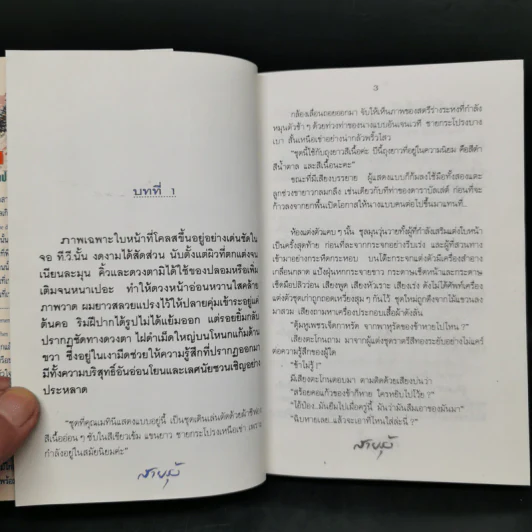 บทที่ 1
ภาพเฉพาะใบหน้าที่โคลสขึ้นอยู่อย่างเด่นชัดใน
จอ ที.วี.นั้น งดงามได้สัดส่วน นับตั้งแต่ผิวที่ตกแต่งจน
เนียนละมุน คิ้วและดวงตามิได้ใช้ของปลอมหรือเพิ่ม
เติมจนหนาเปอะ ทำให้ดวงหน้าอ่อนหวานใสคล้าย
ภาพวาด ผมยาวสลวยแปรงไว้ให้ปลายคุ่มเข้าระอยู่แค่
ต้นคอ ริมฝีปากได้รูปไม่ได้แย้มออก แต่รอยยิ้มกลับ
ปรากฏชัดทางดวงตา ไฝดำเม็ดใหญ่บนโหนกแก้มด้าน
ขวา ซึ่งอยู่ในเงามืดช่วยให้ความรู้สึกที่ปรากฏออกมา
มีทั้งความบริสุทธิ์อันอ่อนโยนและเลศนัยชวนเชิญอย่าง
ประหลาด
"ชุดที่คุณเมทินีแสดงแบบอยู่นี้ เป็นชุดเดินเล่นตัดด้วยผ้าชีฟอง
สีเนื้ออ่อนๆ ซับในสีเขียวเข้ม แขนยาว ชายกระโปรงเหนือเข่า เพราะ
กำลังอยู่ในสมัยนิยมค่ะ"
3
กล้องเลื่อนถอยออกมา จับให้เห็นภาพของสตรีร่างระหงที่กำลัง
หมุนตัวช้าๆ ด้วยท่วงท่าของนางแบบอันเจนเวที ชายกระโปรงบาง
เบา สั้นเหนือเข่าอย่างน่ากลัวพริ้วไสว
"ชุดนี้ใช้กับถุงยาวสีเนื้อค่ะ ปีนี้ถุงยาวที่อยู่ในความนิยม คือสีดำ
สีน้ำตาล และสีเนื้อนะคะ"
ขณะที่มีเสียงบรรยาย ผู้แสดงแบบก็ก้มลงใช้มือทั้งสองแตะ
ลูกช่วงขายาวกลมกลึง เช่นเดียวกับทีท่าของดาราบัลเล่ต์ ก่อนที่จะ
ก้าวลงจากยกพื้นเปิดโอกาสให้นางแบบคนต่อไปขึ้นมาแทนที่...
ห้องแต่งตัวแคบๆ นั้น ชุลมุนวุ่นวายทั้งผู้ที่กำลังเสริมแต่งใบหน้า
เป็นครั้งสุดท้าย ก่อนที่จะจากกระจกอย่างรีบเร่ง และผู้ที่สวนทาง
เข้ามาอย่างกระหืดกระหอบ บนโต๊ะกระจกแต่งตัวมีเครื่องสำอาง
เกลื่อนกลาด แป้งฝุ่นหกกระจายขาว กระดาษเช็ดหน้าและกระดาษ
เช็ดมือปลิวว่อน เสียงพูด เสียงหัวเราะ เสียงเร่ง ดังไม่ได้ศัพท์เครื่อง
แต่งตัวชุดเก่าถูกถอดเหวี่ยงสุมๆ กันไว้ ชุดใหม่ถูกดึงจากไม้แขวนลง
มาสวม เสียงถามหาเครื่องประกอบเสื้อผ้าดังลั่น
"ตุ้มหูเพชรเจ็ดกาหรัด จากพาหุรัดของข้าหายไปไหน ?"
เสียงตะโกนถาม มาจากผู้แต่งชุดราตรีสีทองระยับอย่างไม่แคร์
ต่อความรู้สึกของผู้ใด
"ข้าไม่รู้ !"
มีเสียงตะโกนตอบมา ตามติดด้วยเสียงบ่นว่า
"สร้อยคอแก้วของข้าก็หาย ใครหยิบไปไว้วะ ?"
"โอ๊ย...มันยืมไปเมื่อครู่นี้ มันว่ามันลืมเอาของมันมา"
"ฉิบหายเลย..แล้วจะเอาที่ไหนใส่ล่ะนี่ ?"